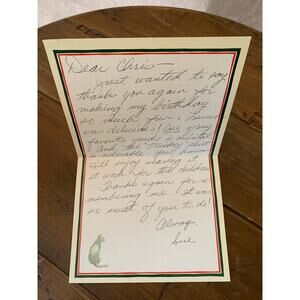 Dear Chris—
Just wanted to say
thank you again for
making my birthday
so much fun. Lunch
was delicious! One of my
favorite foods is
And the Mickey shirt
is adorable.
I'll enjoy wearing it
it with for the children
Thanks again for re-
membering me. It was
so much of you to do!
Always,
Sue